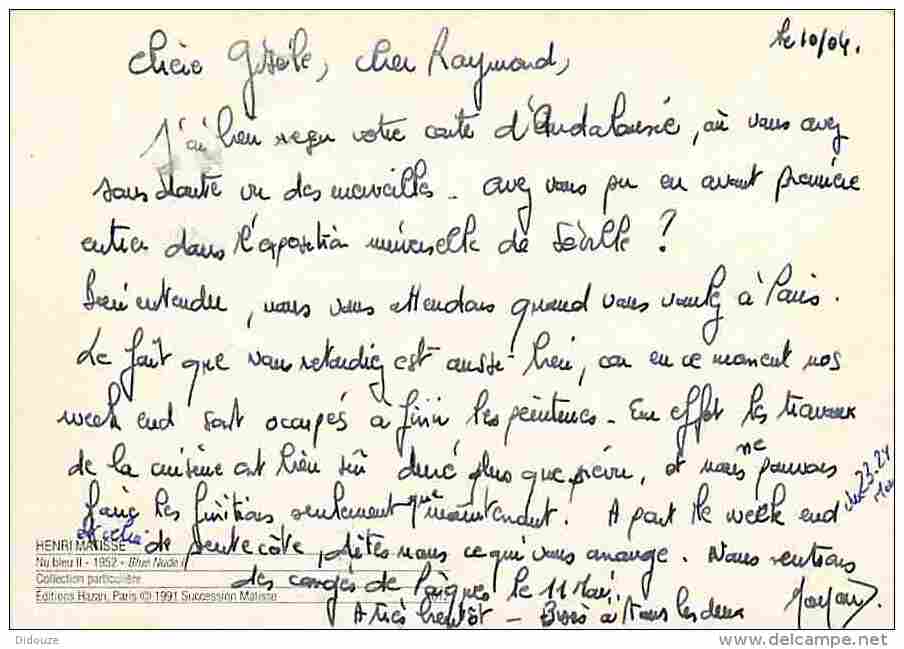 le 10/04.
Chère Gisèle, cher Raymond,
J'ai bien reçu votre carte d'Andalousie, où vous avez
sans doute vu des merveilles. avez vous pu en avant première
entrer dans l'exposition universelle de Séville ?
Bien entendu, nous vous attendons quand vous voulez à Paris.
Le fait que vous retardiez est aussi bien, car en ce moment nos
week end sont occupés à finir les peintures. En effet les travaux
de la cuisine ont bien sûr duré plus que prévu, et nous ne pouvons
faire les finitions seulement que maintenant. A part le week end
du 23.24
de pentecôte, dites nous ce qui vous arrange. Nous rentrons
des congés de Pâques le 11 Mai.
A très bientôt - Bises à tous les deux
HENRI MATISSE
Nu bleu II - 1952 - Blue Nude
Collection particulière
Éditions Hazan, Paris © 1991 Succession Matisse
Didouze
www.delcampe.net